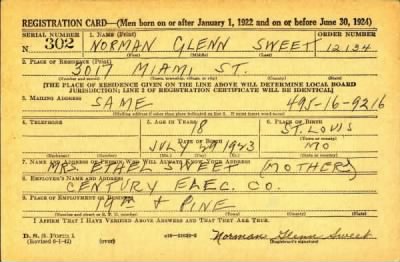 REGISTRATION CARD—(Men born on or after January 1, 1922 and on or before June 30, 1924)
SERIAL NUMBER 1. NAME (Print) ORDER NUMBER
N 302 NORMAN GLENN SWEET 12134
2. PLACE OF RESIDENCE (Print)
3017 MIAMI ST.
(Number and street) (Town, township, village, or city) (County) (State)
[THE PLACE OF RESIDENCE GIVEN ON THE LINE ABOVE WILL DETERMINE LOCAL BOARD
JURISDICTION; LINE 2 OF REGISTRATION CERTIFICATE WILL BE IDENTICAL]
3. MAILING ADDRESS
SAME 495-16-9216
[Mailing address if other than place indicated on line 2. If same insert word same]
4. TELEPHONE 5. AGE IN YEARS 6. PLACE OF BIRTH
18 ST. LOUIS
DATE OF BIRTH
JULY 29 1923 MO
(Exchange) (Number) (Mo.) (Day) (Yr.) (State or country)
7. NAME AND ADDRESS OF PERSON WHO WILL ALWAYS KNOW YOUR ADDRESS
MRS. ETHEL SWEET (MOTHER)
8. EMPLOYER'S NAME AND ADDRESS
CENTURY ELEC. CO.
9. PLACE OF EMPLOYMENT OR BUSINESS
19TH & PINE
(Number and street or R. F. D. number) (Town) (County) (State)
I AFFIRM THAT I HAVE VERIFIED ABOVE ANSWERS AND THAT THEY ARE TRUE.
D. S. S. Form 1
(Revised 6-1-42) Norman Glenn Sweet
(Registrant's signature)